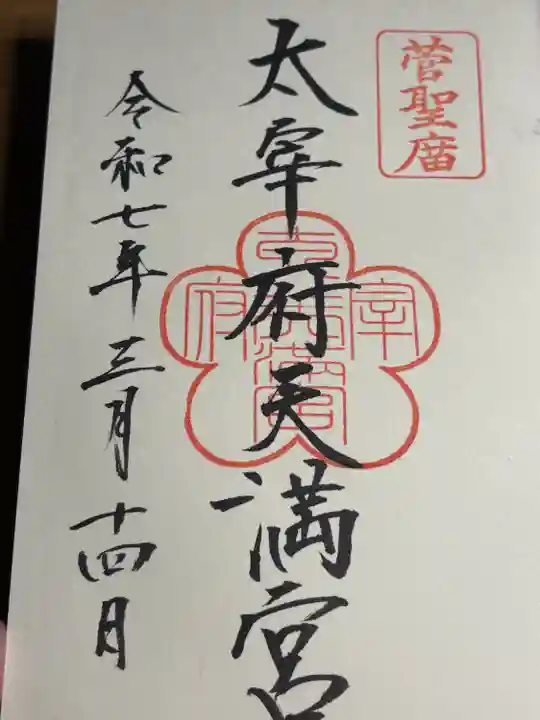 菅聖庿
太宰府天満宮
令和七年三月十四日